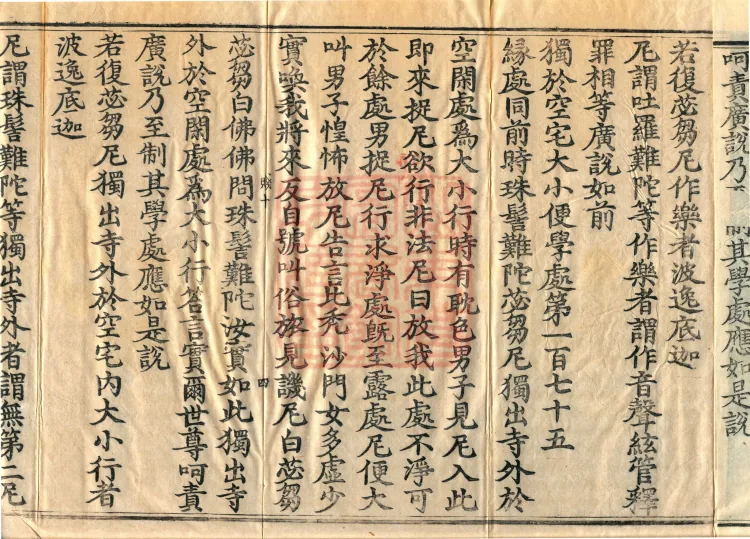 呵責廣說乃其學處應如是說
若復苾芻尼作樂者波逸底迦
尼謂吐羅難陀等作樂者謂作音聲絃管釋
罪相等廣說如前
獨於空宅大小便學處第一百七十五
緣處同前時珠髻難陀苾芻尼獨出寺外於
空閑處爲大小行時有耽色男子見尼入此
即來捉尼欲行非法尼曰放我此處不淨可
於餘處男捉尼行求淨處旣至露處尼便大
叫男子惶怖放尼告言此禿沙門女多虛少
實喚我將來反自號叫俗旅見譏尼白苾芻
十 四
苾芻白佛佛問珠髻難陀汝實如此獨出寺
外於空閑處爲大小行答言實爾世尊呵責
廣說乃至制其學處應如是說
若復苾芻尼獨出寺外於空宅內大小行者
波逸底迦
尼謂珠髻難陀等獨出寺外者謂無第二尼